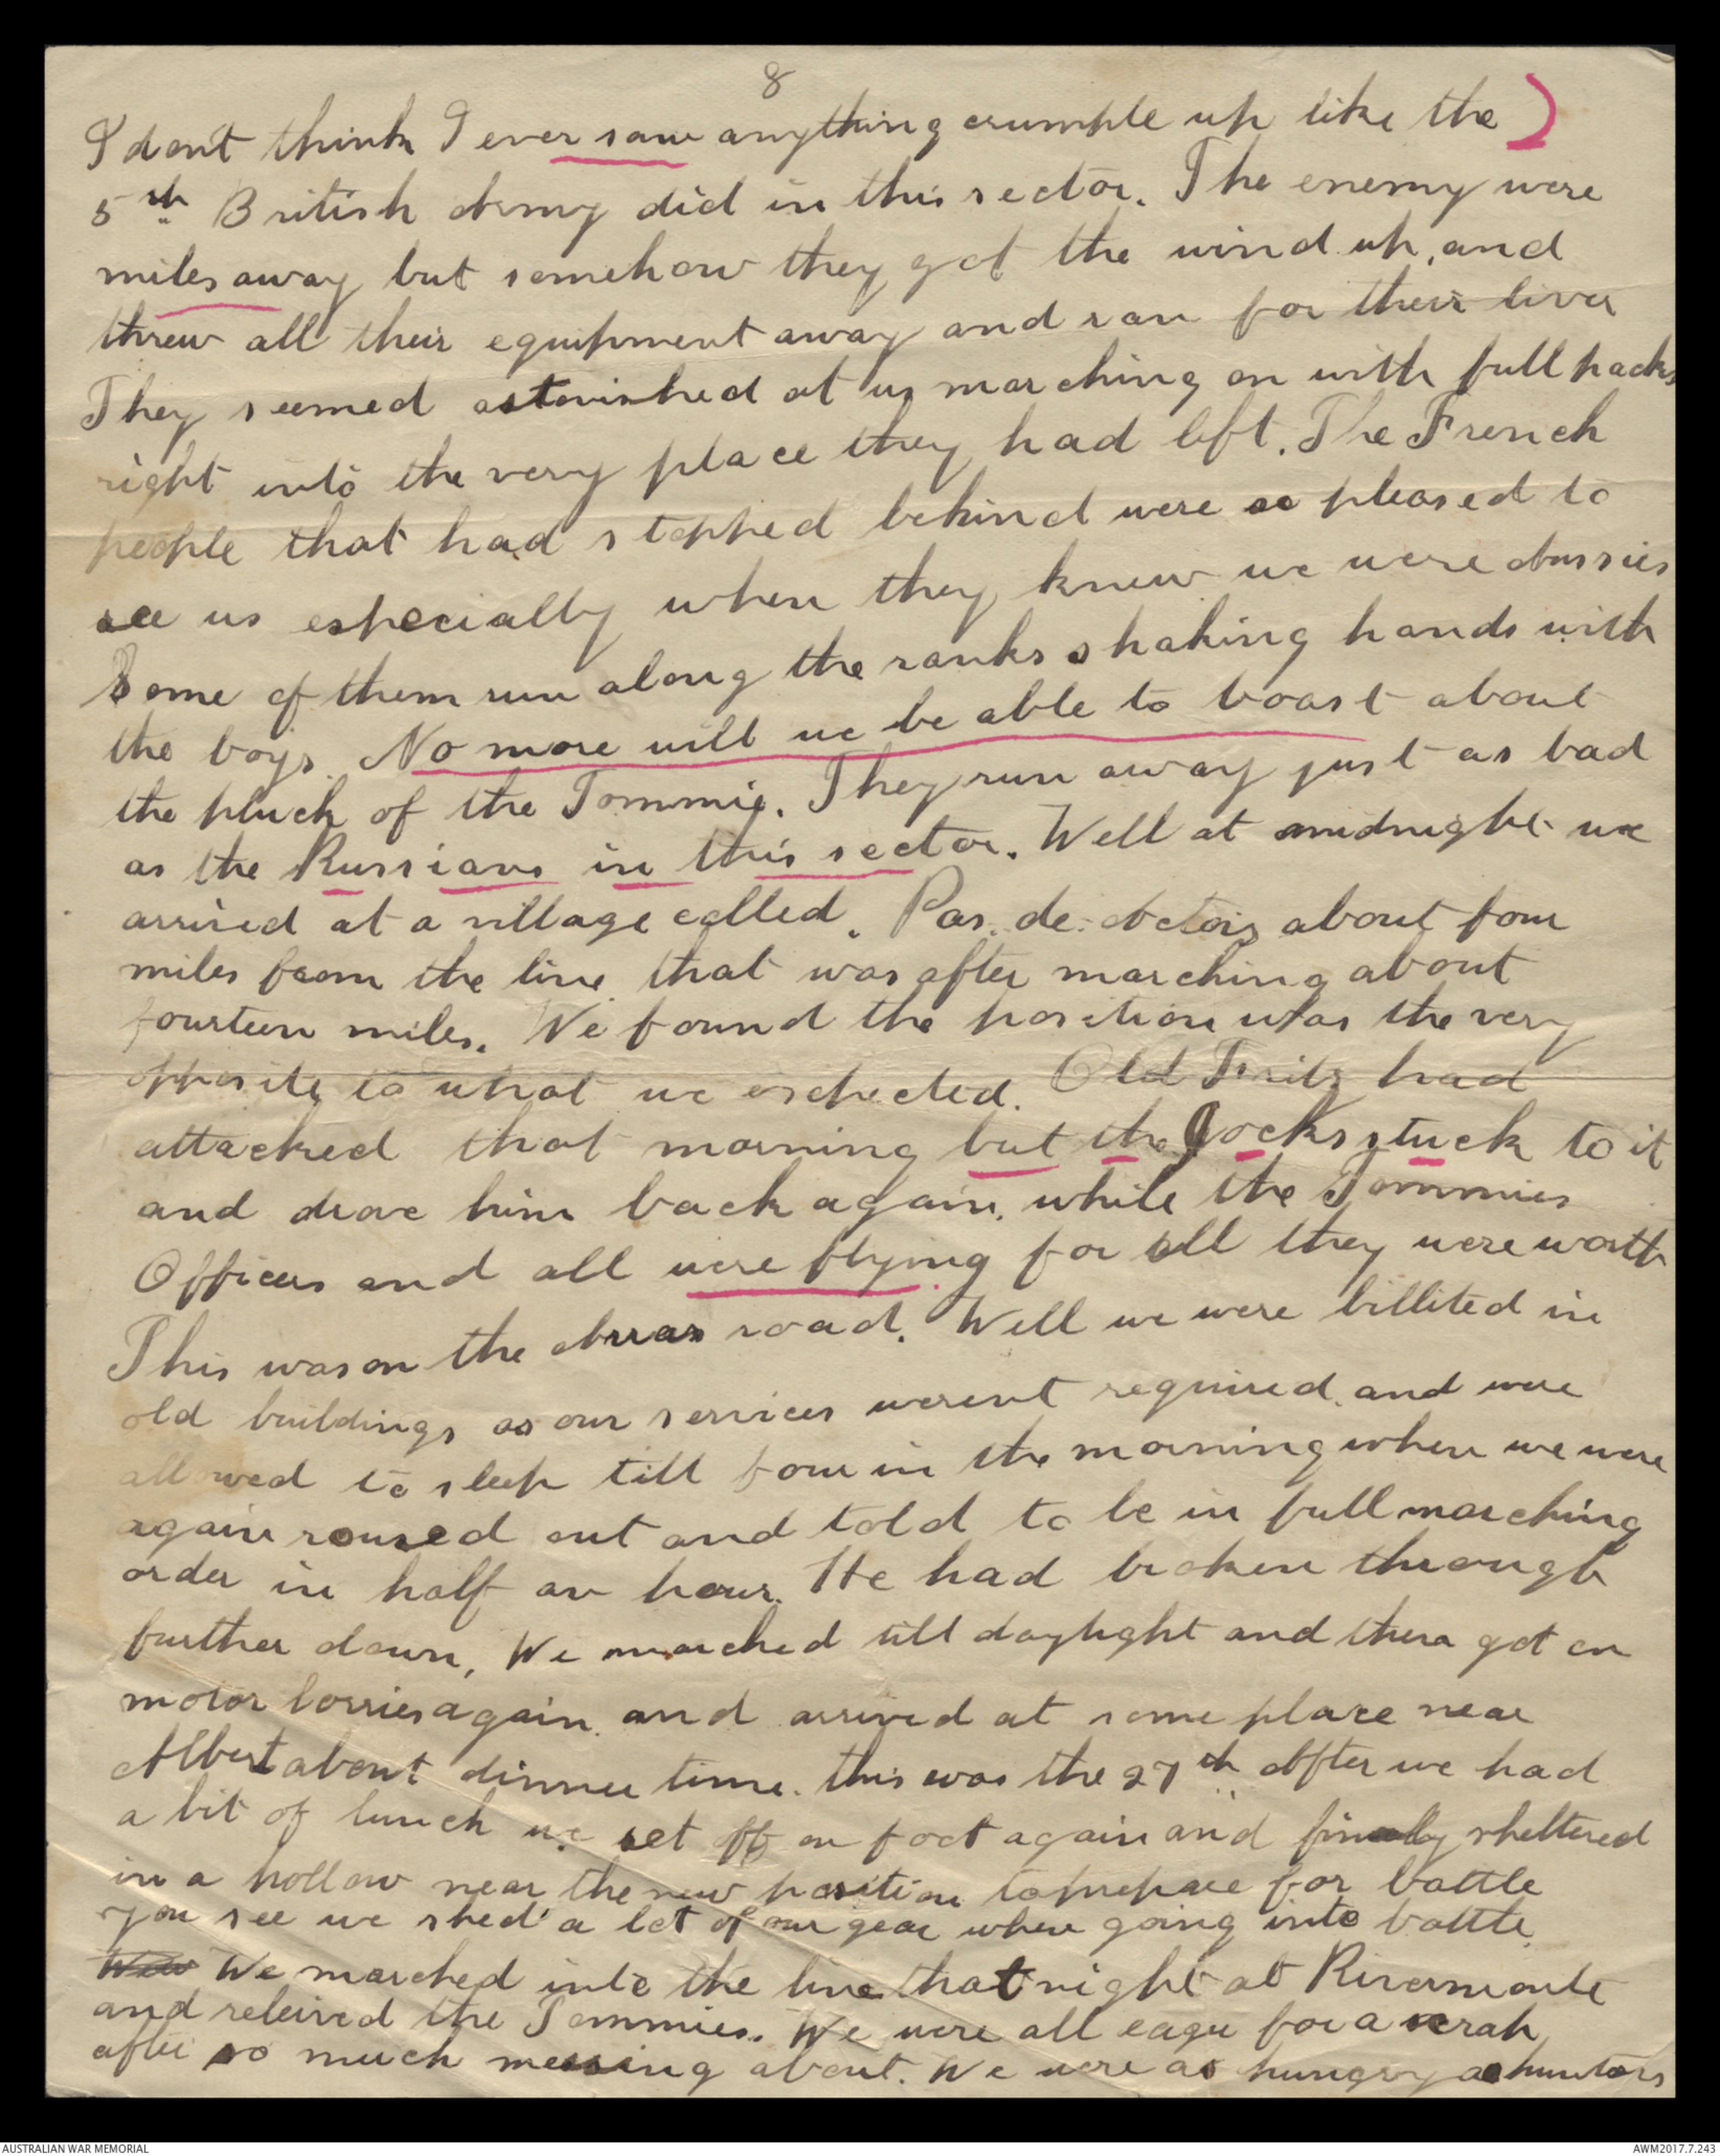 8
I dont think I ever saw anything crumple up like the
5th British Army did in this sector. The enemy were
miles away but somehow they got the wind up, and
threw all their equipment away and ran for their lives
They seemed astonished at us marching on with full packs
right into the very place they had left. The French
people that had stopped behind were so pleased to
see us especially when they knew we were Aussies
Some of them run along the ranks shaking hands with
the boys. No more will we be able to boast about
the pluck of the Tommie. They run away just as bad
as the Russians in this sector. Well at midnight we
arrived at a village called. Pas. de. about four
miles from the line that was after marching about
fourteen miles. We found the position was the very
opposite to what we expected. Old Fritz had
attacked that morning but the Jocks stuck to it
and drove him back again, while the Tommies
Officers and all were flying for all they were worth
This was on the Arras road. Well we were billited in
old buildings as our services werent required, and were
allowed to sleep till four in the morning when we were
again roused out and told to be in full marching
order in half an hour. He had broken through
further down, We marched till daylight and then got on
motor lorries again, and arrived at some place near
Albert about dinner time. this was the 27th After we had
a bit of lunch we set off on foot again and finally sheltered
in a hollow near the new position to prepare for battle
you see we shed a lot of our gear when going into battle.
We marched into the line that night at Rivemonte
and releived the Tommies. We were all eager for a scrap
after so much messing about. We were as hungry as hunters
AUSTRALIAN WAR MEMORIAL
AWM2017.7.243